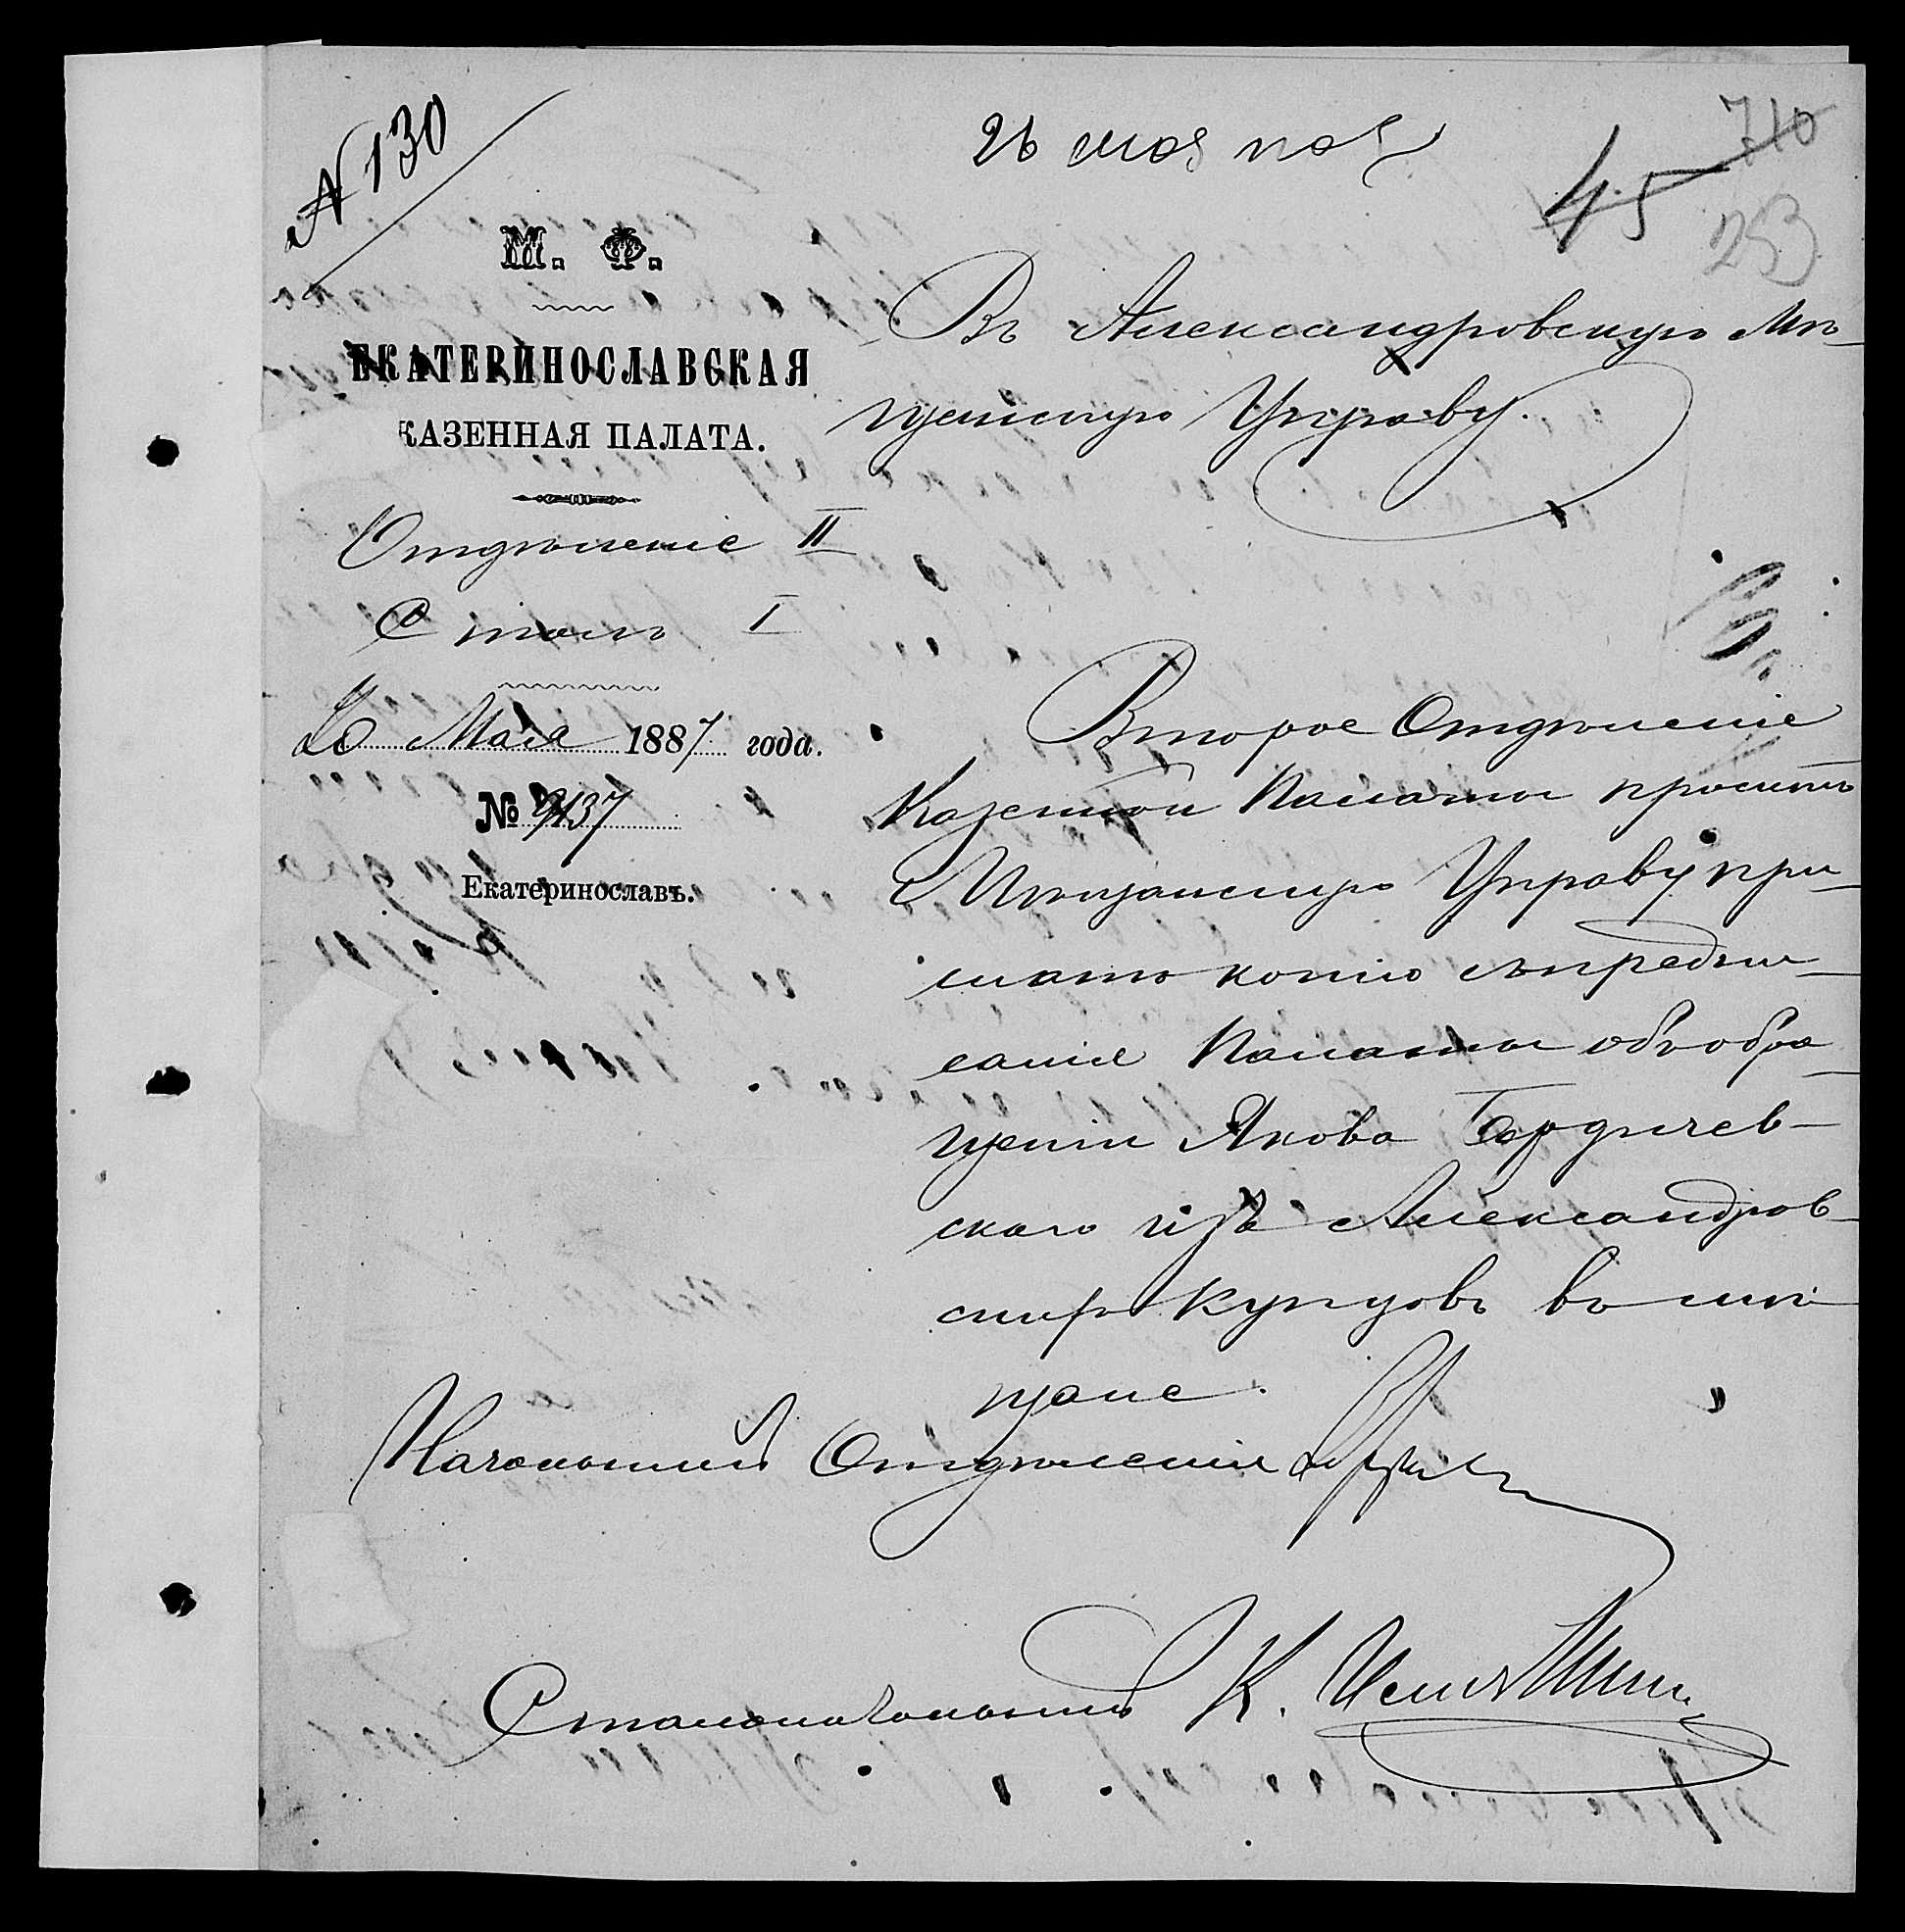 № 130
26 мая
710
45
253
М. Ф.
ЕКАТЕРИНОСЛАВСКАЯ
КАЗЕННАЯ ПАЛАТА.
Отдѣленіе II
Столъ I
20 Мая 1887 года.
№ 9137
Екатеринославъ.
Въ Александровскую Мѣ-
щанскую Управу.
Второе Отдѣленіе
Казенной Палаты проситъ
Мѣщанскую Управу при-
слать копію съ предпи-
санія Палаты объ обра-
щеніи Якова Бердичев-
скаго изъ Александров-
скихъ купцовъ въ мѣ-
щане.
Начальникъ Отдѣленія
Столоначальникъ К.